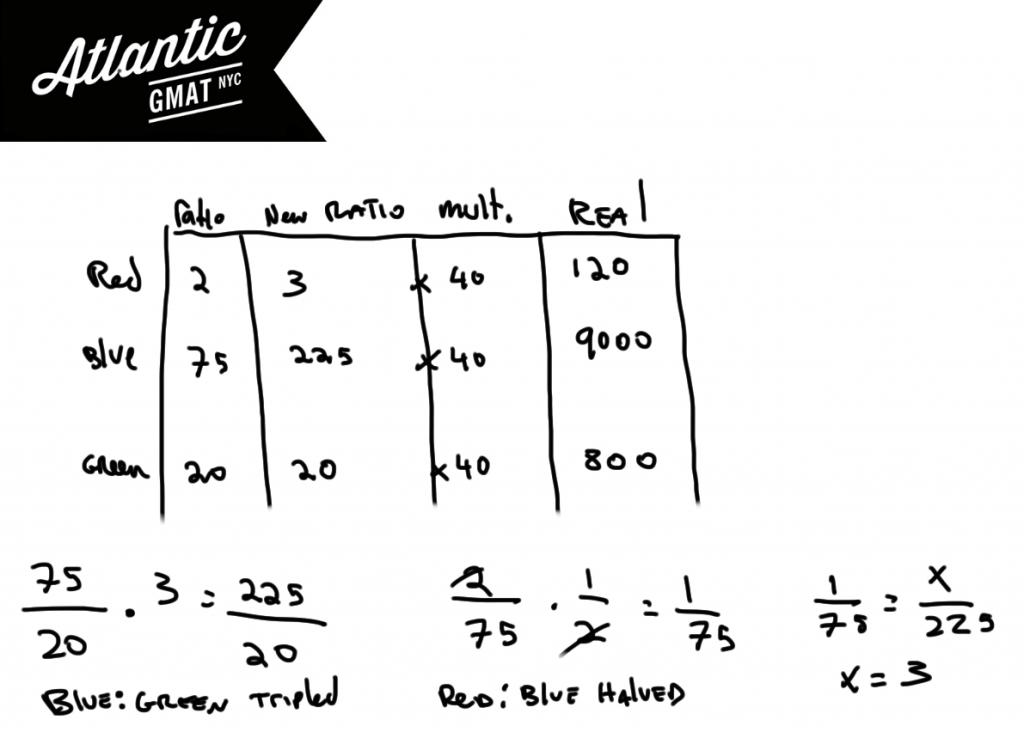 Atlantic
GMAT NYC
Ratio New RATIO mult. REAl
Red 2 3 x 40 120
Blue 75 225 x 40 9000
Green 20 20 x 40 800
75/20 . 3 = 225/20
2/75 . 1/2 = 1/75
1/75 = x/225
x = 3
BLUE: GREEN TRIPled
RED: BLUE HALVED